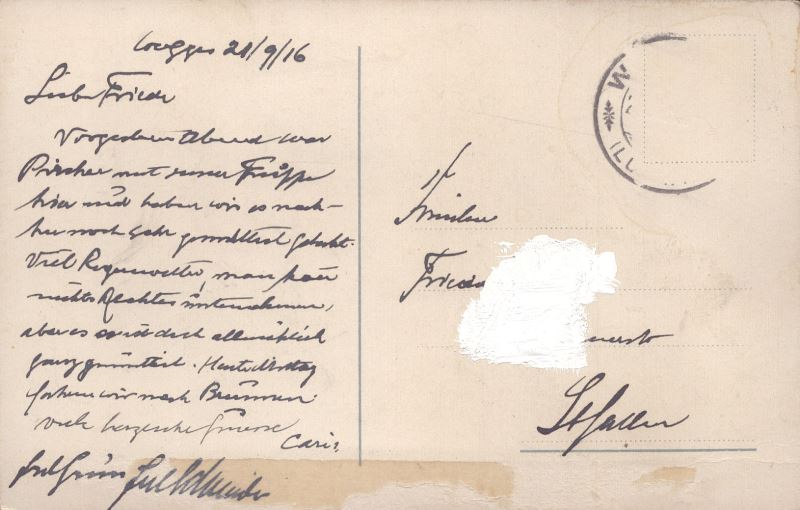 Weggis 21/9/16
Liebe Friede
Vorgestern Abend war
Pircher mit seiner Truppe
hier und haben wir es nach-
her noch sehr gemütlich gehabt.
Viel Regenwetter, man kann
nichts Rechtes unternehmen,
aber es ist doch
ganz gemütlich. Heute Mittag
fahren wir nach Brunnen
viele herzliche Grüsse
Caris
frl.
Frieda
St Gallen
W